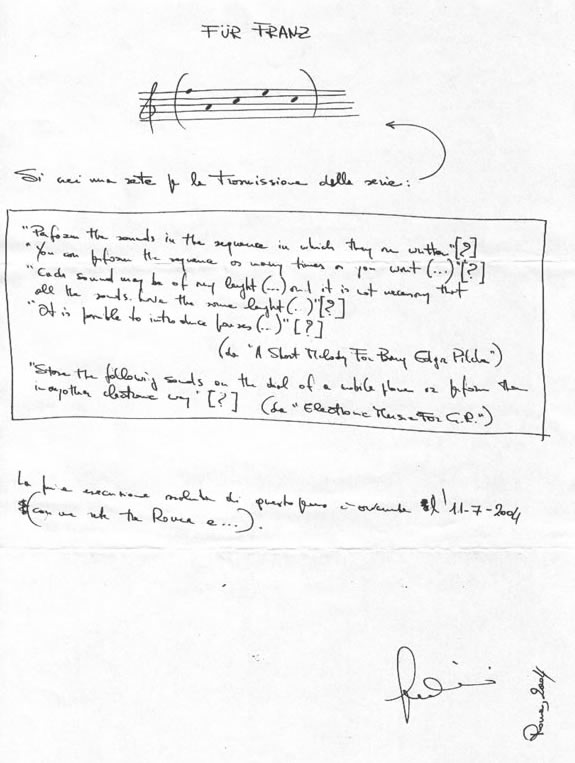 FÜR FRANZ
Si crei una rete per la trasmissione della serie:
"Perform the sounds in the sequence in which they are written" [?]
"You can perform the sequence as many times as you want (...)" [?]
"Each sound may be of any lenght (...) and it is not necessary that
all the sounds have the same lenght (...)" [?]
"It is possible to introduce pauses (...)" [?]
(da "A Short Melody For Being Edgar Pilcher")
"Store the following sounds on the dial of a mobile phone or perform them
in another electronic way" [?] (da "Electronic Music For G.R.")
La prima esecuzione di questo avverrà l'11-7-2004
(con una rete tra Roma e ...).
Roma, 2004